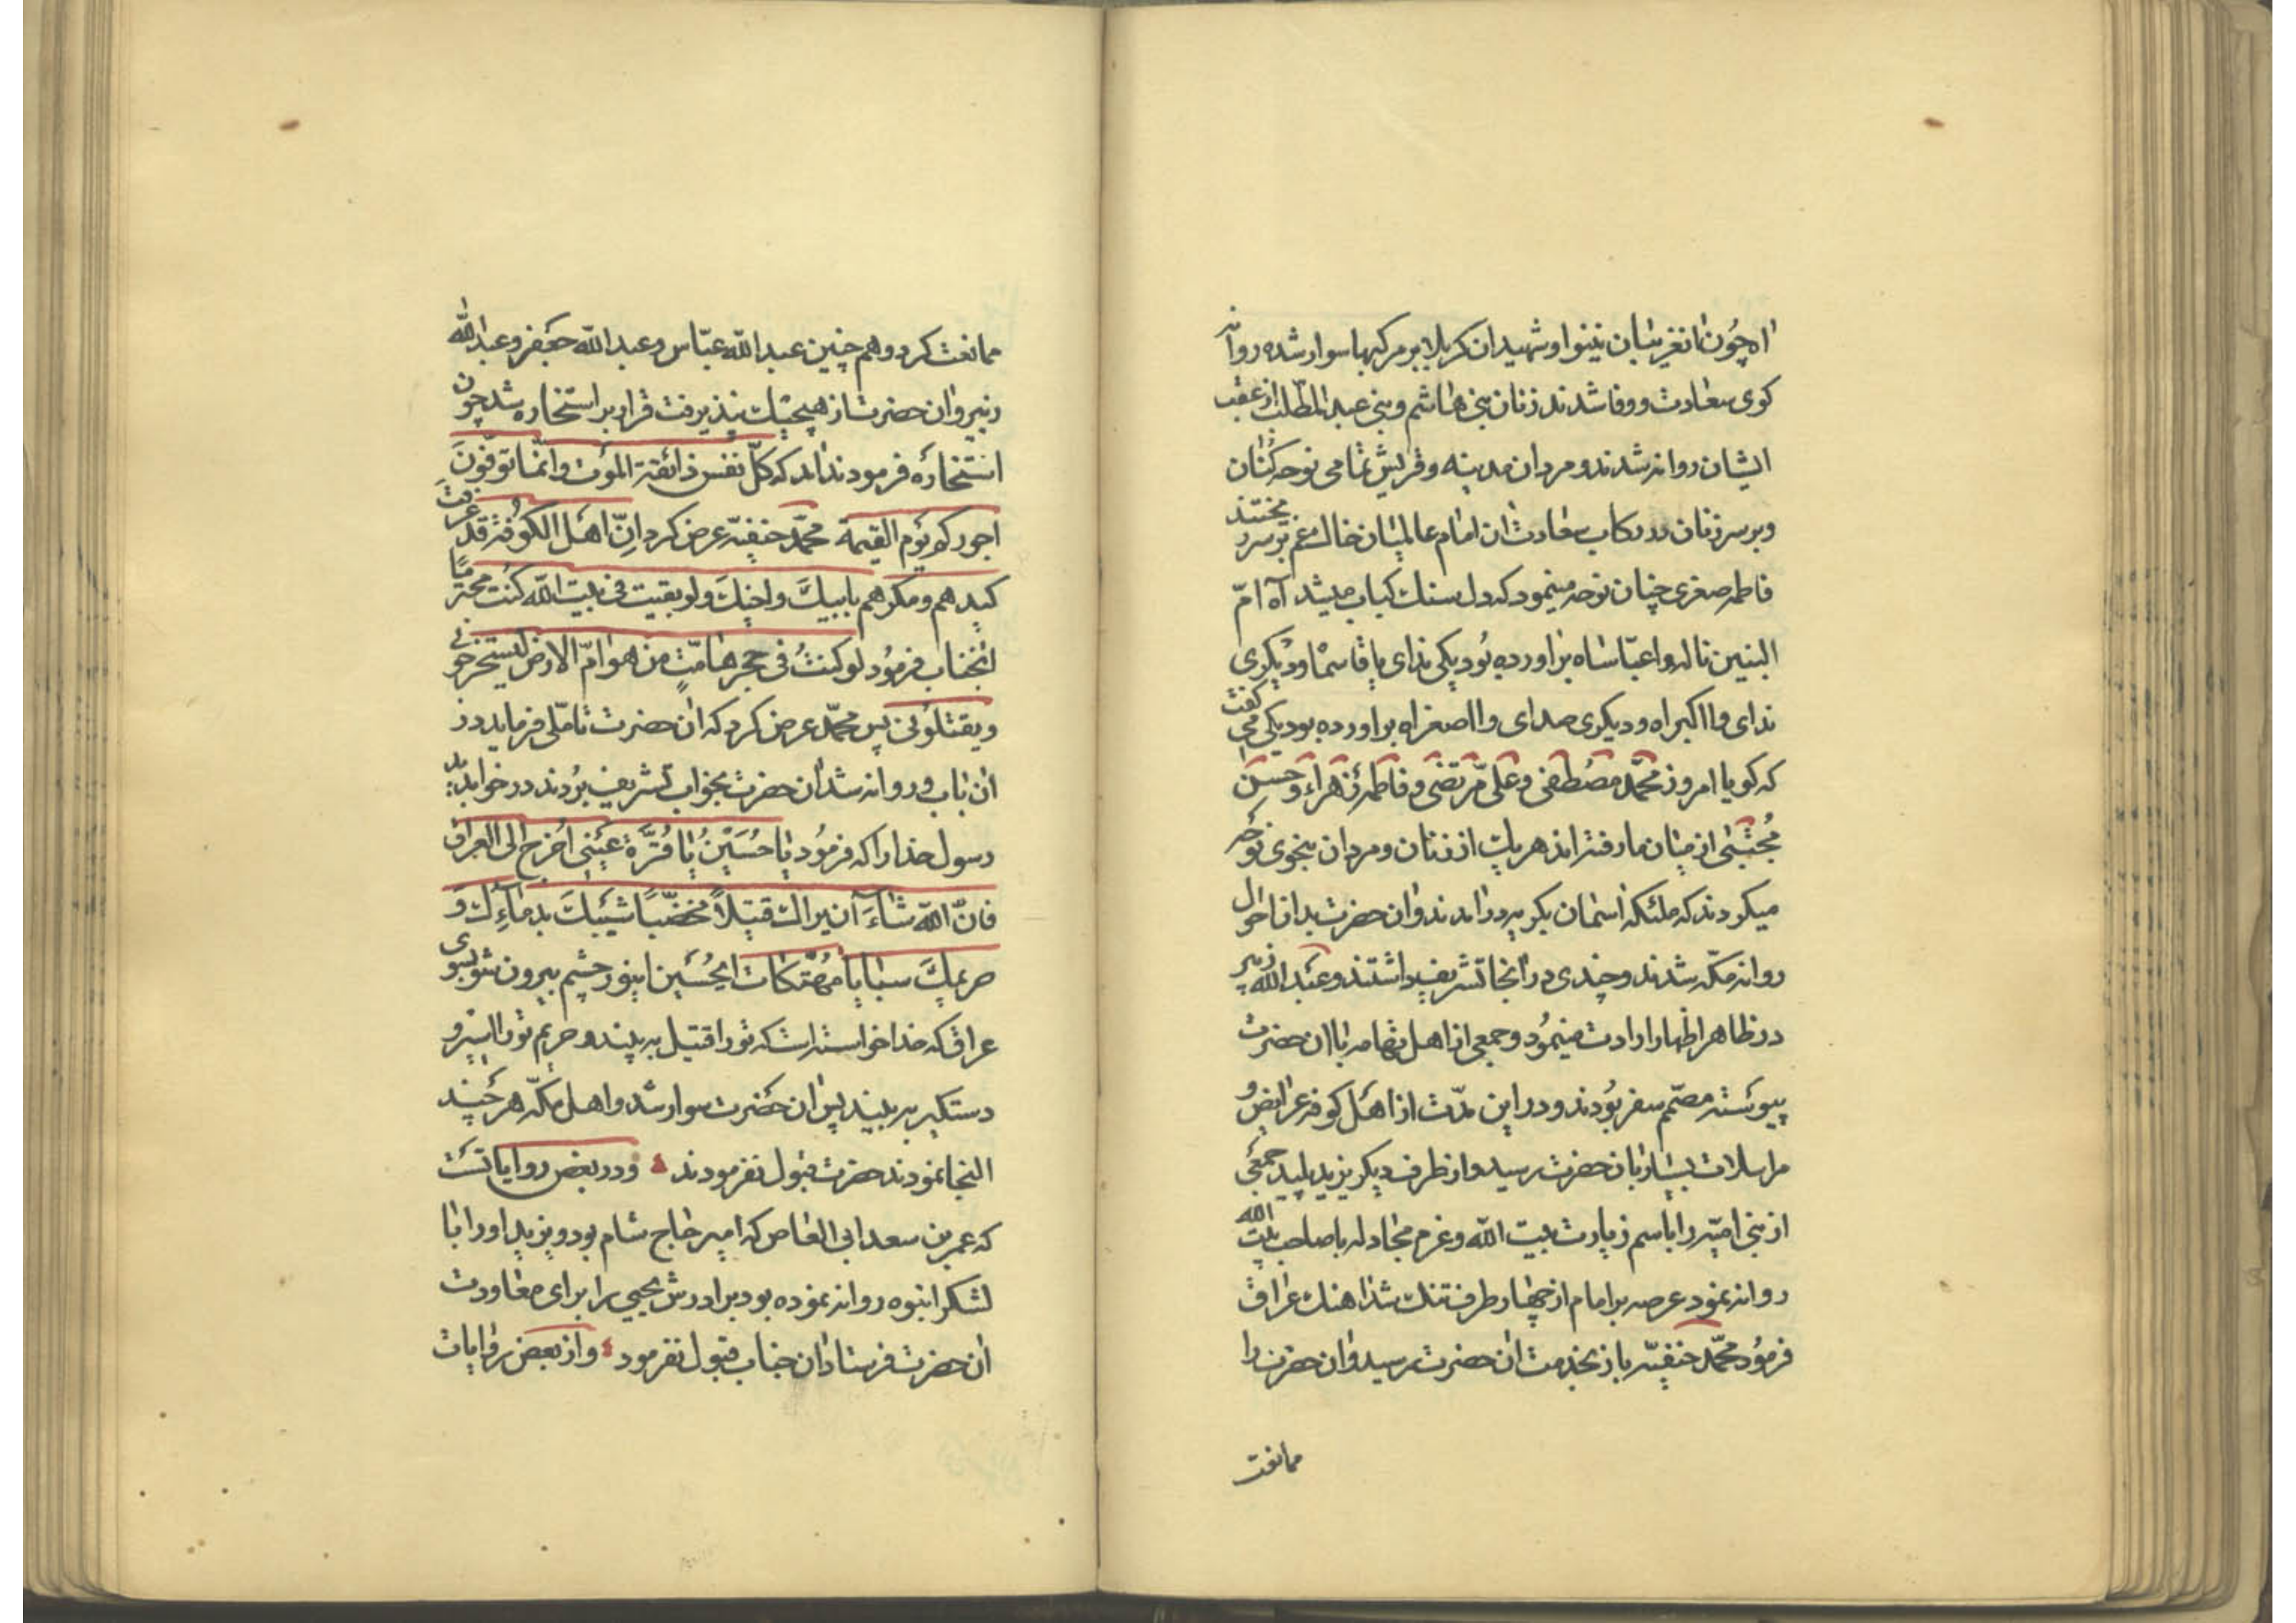 اه چون آن غریبان نینوا و شهیدان کربلا بر مرکبها سوار شده روانه
کوی سعادت و وفا شدند زنان بنی هاشم و بنی عبد المطلب از عقب
ایشان روانه شدند و مردان مدینه و قریش تمامی نوحه کنان
و بر سر زنان در رکاب سعادت ان امام عالمیان خاک غم بر سر میریختند
فاطمه صغری چنان نوحه مینمود که دل سنک کباب میشد آه امّ
البنین ناله وا عبّاساه براورده بود یکی ندای یا قاسماه و دیکری
ندای وا اکبراه و دیکری صدای وا اصغراه براورده بود یکی می کفت
که کویا امروز محمّد مصطفی و علی مرتضی و فاطمه زهراء و حسن
مجتبی از میان ما رفته اند هر یک از زنان و مردان بنحوی نوحه
میکردند که ملئکه اسمان بکریه درامدند و ان حضرت بدان احوال
روانه مکّه شدند و چندی در انجا تشریف داشتند و عبد الله زبیر
در ظاهر اظهار ارادت مینمود و جمعی از اهل تهامه با ان حضرت
پیوسته مصمّم سفر بودند و در این مدّت از اهل کوفه عرایض و
مراسلات بسیار بان حضرت رسید و از طرف دیکر یزید پلید جمعی
از بنی امیّه را باسم زیارت بیت الله و عزم مجادله با صاحب بیت الله
روانه نمود عرصه بر امام از چهار طرف تنک شد اهنک عراق
فرمود محمّد حنفیّه باز بخدمت ان حضرت رسید و ان حضرت را
ممانعت
ممانعت کرد و هم چنین عبد الله عبّاس و عبد الله جعفر و عبد الله
زبیر و ان حضرت از هیچیک نپذیرفت قرار بر استخاره شد چون
استخاره فرمودند اید که کلّ نفس ذائقة الموت و انّما توفّون
اجورکم یوم القیمة محمّد حنفیّه عرض کرد انّ اهل الکوفة قد عرفت
کیدهم و مکرهم بابیک و اخیک و لو بقیت فی بیت الله کنت محترمًا
انجناب فرمود لو کنتُ فی حجر هامّة من هوامّ الارض لیستخرجونی
و یقتلونی پس محمّد عرض کرد که ان حضرت تاملی فرماید در
ان باب و روانه شد ان حضرت بخواب تشریف بردند در خواب دید
رسول خدا را که فرمود یا حُسَیْنُ یا قُرَّةَ عَیْنی اُخرج الی العراق
فانّ الله شاءَ ان یراک قتیلًا مخضّبًا شیبک بدمائِک وَ
حریمک سبایا مُهتّکات ایحسین اینور چشم بیرون شو بسوی
عراق که خدا خواسته است که تو را قتیل به بیند و حریم تو را اسیر و
دستکیر به بیند پس ان حضرت سوار شد و اهل مکّه هر چند
التجا نمودند حضرت قبول نفرمودند و در بعض روایاتست
که عمر بن سعد ابی العاص که امیر حاج شام بود و یزید او را با
لشکر انبوه روانه نموده بود برادرش یحیی را برای معاودت
ان حضرت فرستاد ان جناب قبول نفرمود و از بعض روایات